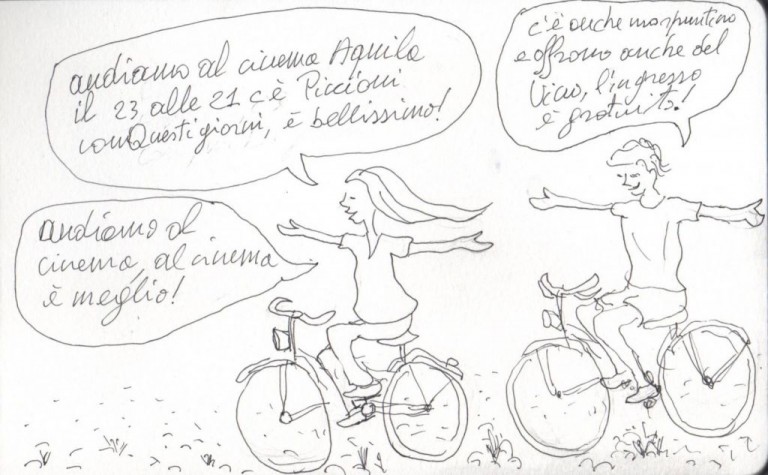 andiamo al cinema Aquila
il 23 alle 21 c'è Piccioni
con Questi giorni, è bellissimo!
c'è anche uno spuntino
e offrono anche del
vino, l'ingresso
è gratuito!
andiamo al
cinema, al cinema
è meglio!